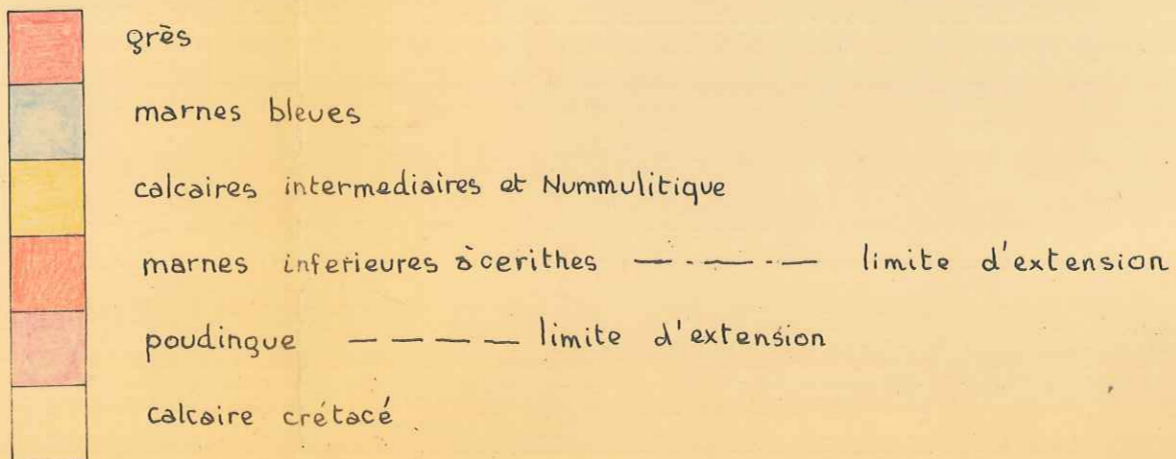 grès
marnes bleues
calcaires intermediaires et Nummulitique
marnes inferieures à cerithes — . — . — limite d'extension
poudingue — — — — limite d'extension
calcaire crétacé